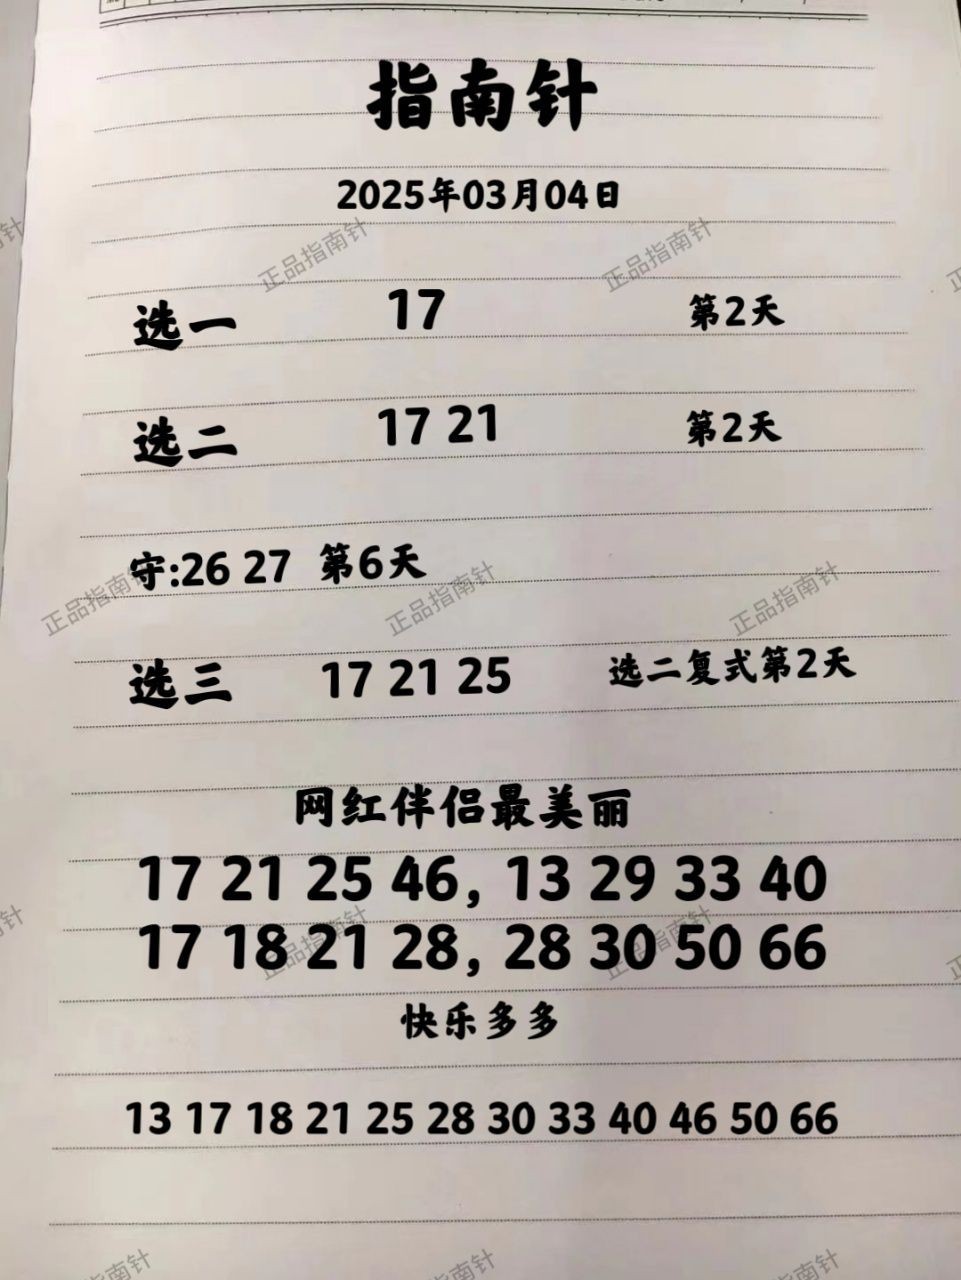 指南针
2025年03月04日
选一 17 第2天
选二 17 21 第2天
守:26 27 第6天
选三 17 21 25 选二复式第2天
网红伴侣最美丽
17 21 25 46, 13 29 33 40
17 18 21 28, 28 30 50 66
快乐多多
13 17 18 21 25 28 30 33 40 46 50 66
正品指南针
正品指南针
正品指南针
正品指南针
正品指南针
正品指南针
正品指南针